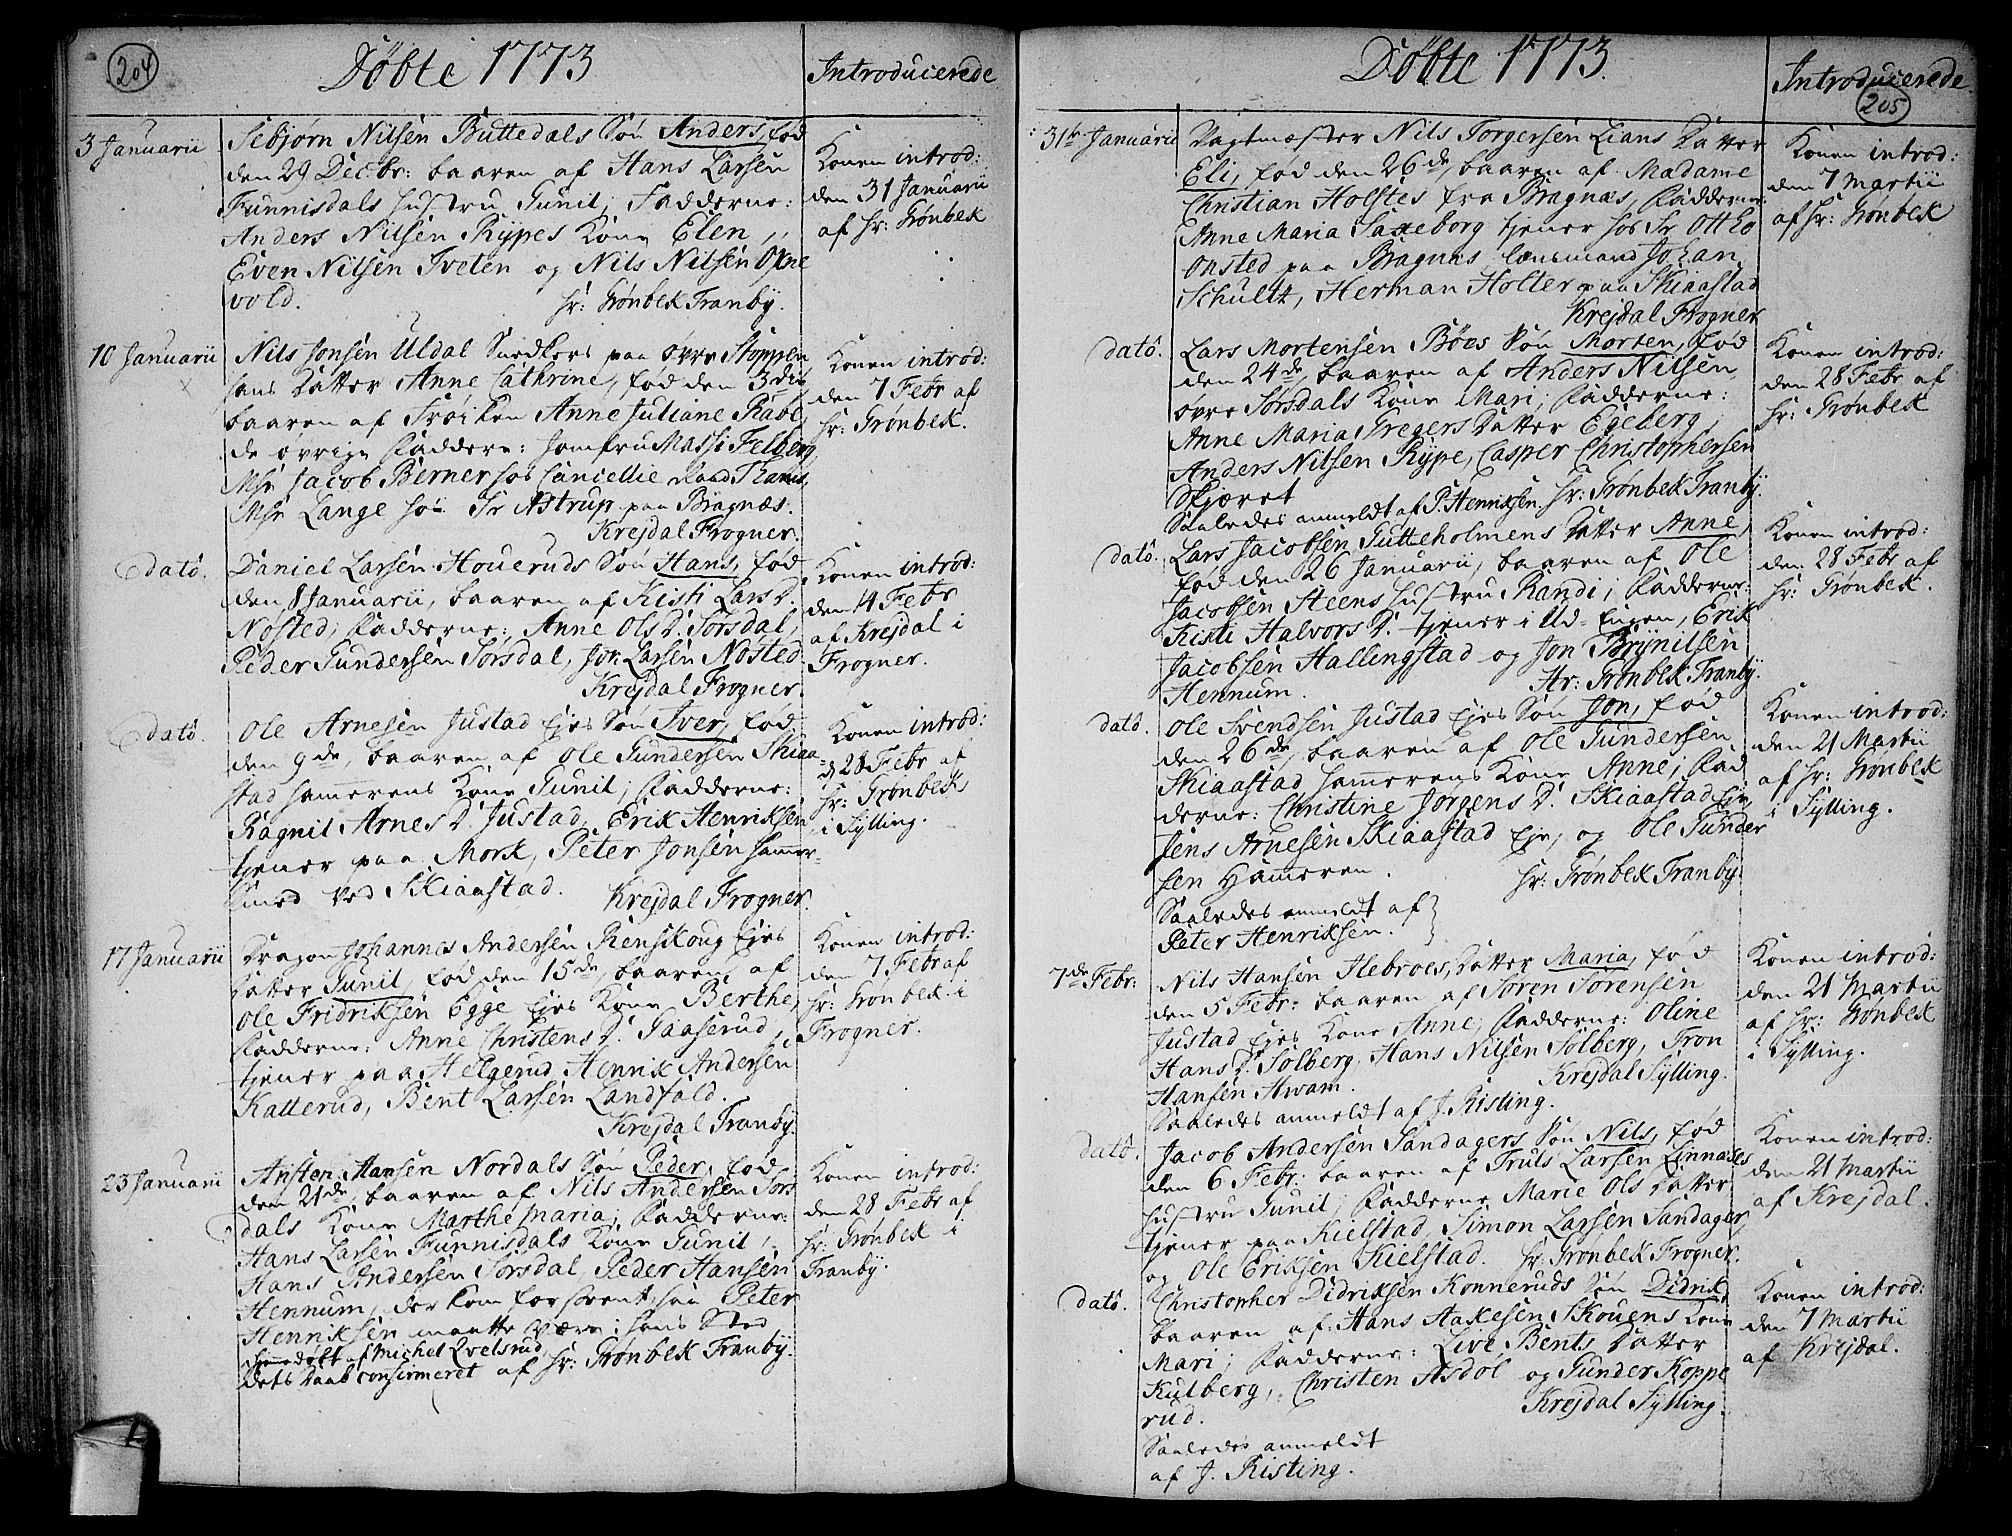 204
Döbte 1773
Introducerede
3 Januarii
Sebjørn Nilsen Buttedals Søn Anders, fød
den 29 Decbr: baaren af Hans Larsen
Funnisdals Hustru Gunil; Fadderne:
Anders Nilsen Rypes Kone Elen,
Even Nilsen Tveten og Nils Nilsen Oxne
vold. Hr: Grønbek Tranby.
Konen introd:
den 31 Januarii
af Hr: Grønbek
10 Januarii
Nils Jonsen Uldal Snedkers paa øvre Stoppen
hans Datter Anne Cathrine, fød den 3die
baaren af Frøiken Anne Juliane Rabe,
de øvrige Faddere: Jomfru Massi Felberg
Msr Jacob Berner hos Cancellie Raad Thams,
Msr Lange hos Sr Astrup paa Bragnæs.
Krejdal Frogner.
Konen introd:
den 7 Febr af
Hr: Grønbek.
dato.
Daniel Larsen Houeruds Søn Hans, fød
den 8 Januarii, baaren af Kisti Lars D.
Nøsted; Fadderne: Anne Ols D. Sørsdal,
Peder Gundersen Sørsdal, Jon Larsen Nøsted
Krejdal Frogner.
Konen introd:
den 14 Febr
af Krejdal i
Frogner.
dato.
Ole Arnesen Justad Ejes Søn Iver, fød
den 9de, baaren af Ole Gundersen Skiaa
stad Hamerens Kone Gunil; Fadderne:
Ragnil Arnes D. Justad, Erik Henriksen
tjener paa Mork, Peter Jonsen Hamer-
smed ved Skiaastad. Krejdal Frogner.
Konen introd:
d 28 Febr af
Hr: Grønbek
i Sylling.
17 Januarii
Dragon Johannes Andersen Renskoug Ejes
Datter Gunil, fød den 15de, baaren af
Ole Fridriksen Egge Ejes Kone Berthe,
Fadderne: Anne Christens D. Gaaserud,
tjener paa Helgerud, Henrik Andersen
Katterud, Bent Larsen Landfald.
Krejdal Tranby.
Konen introd:
den 7 Febr af
Hr: Grønbek i
Frogner.
23 Januarii
Ansten Hansen Nordals Søn Peder, fød
den 21de, baaren af Nils Andersen Sørs
dals Kone Marthe Maria; Fadderne:
Hans Larsen Funnisdals Kone Gunil,
Hans Andersen Sørsdal, Peder Hansen
Hennum, der kom for seent, saa Peter
Henriksen maatte være i hans Sted
hjemedøbt af Michel Qvelsrud
dets Daab confirmeret af Hr: Grønbek Tranby.
Konen introd:
den 28 Febr af
Hr: Grønbek i
Tranby.
Döbte 1773.
Introducerede
205
31te Januarii
Vagtmester Nils Torgersen Lians Datter
Eli, fød den 26de, baaren af Madame
Christian Holstes fra Bragnæs, Fadderne:
Anne Maria Saxeborg tjener hos Sr Ottho
Onsted paa Bragnæs Lensmand Johan
Schultz, Herman Holter paa Skiaastad
Krejdal Frogner
Konen introd:
den 7 Martii
af Hr: Grønbek
dato.
Lars Mortensen Bøes Søn Morten, fød
den 24de, baaren af Anders Nilsen
øvre Sørsdals Kone Mari; Fadderne:
Anne Maria Gregers Datter Egeberg,
Anders Nilsen Rype, Casper Christophersen
Skjæret
Saaledes anmeldt af P. Henriksen Hr: Grønbek Tranby.
Konen introd:
den 28 Febr af
Hr: Grønbek
dato.
Lars Jacobsen Gutteholmens Datter Anne,
fød den 26 Januarii, baaren af Ole
Jacobsen Steens Hustru Randi; Fadderne:
Kisti Halvors D. tjener i Ud-Engen, Erik
Jacobsen Hallingstad og Jon Brynilsen
Hennum. Hr: Grønbek Tranby.
Konen introd:
den 28 Febr af
Hr: Grønbek.
dato.
Ole Svendsen Justad Ejes Søn Jon, fød
den 26de, baaren af Ole Gundersen
Skiaastad Hamerens Kone Anne; Fad
derne: Christine Jørgens D. Skiaastad Eje,
Jens Arnesen Skiaastad Eje, og Ole Gunder
sen Hameren. Hr: Grønbek Tranby.
Saaledes anmeldt af
Peter Henriksen.
Konen introd:
den 21 Martii
af Hr: Grønbek
i Sylling.
7de Febr:
Nils Hansen Hebroes, Datter Maria, fød
den 5 Febr: baaren af Søren Sørensen
Justad Ejes Kone Anne; Fadderne: Oline
Hans D. Sølberg, Hans Nilsen Sølberg, Tron
Hansen Hwam. Krejdal Sylling.
Saaledes anmeldt af J. Risting.
Konen introd:
den 21 Martii
af Hr: Grønbek
i Sylling.
dato.
Jacob Andersen Sandagers Søn Nils, fød
den 6 Febr: baaren af Truls Larsen Linnæses
Hustru Gunil; Fadderne Marie Ols Datter
tjener paa Kielstad, Simon Larsen Sandager,
og Ole Eriksen Kielstad. Hr: Grønbek Frogner.
Konen introd:
den 21 Martii
af Krejdal.
dato.
Christopher Didriksen Konneruds Søn Didrik,
baaren af Hans Aakesen Skouens Kone
Mari; Fadderne: Live Bents Datter
Kulberg, Christen Asdøl og Gunder Koppe
rud. Krejdal Sylling.
Saaledes anmeldt
af J. Risting.
Konen introd:
den 7 Martii
af Krejdal.